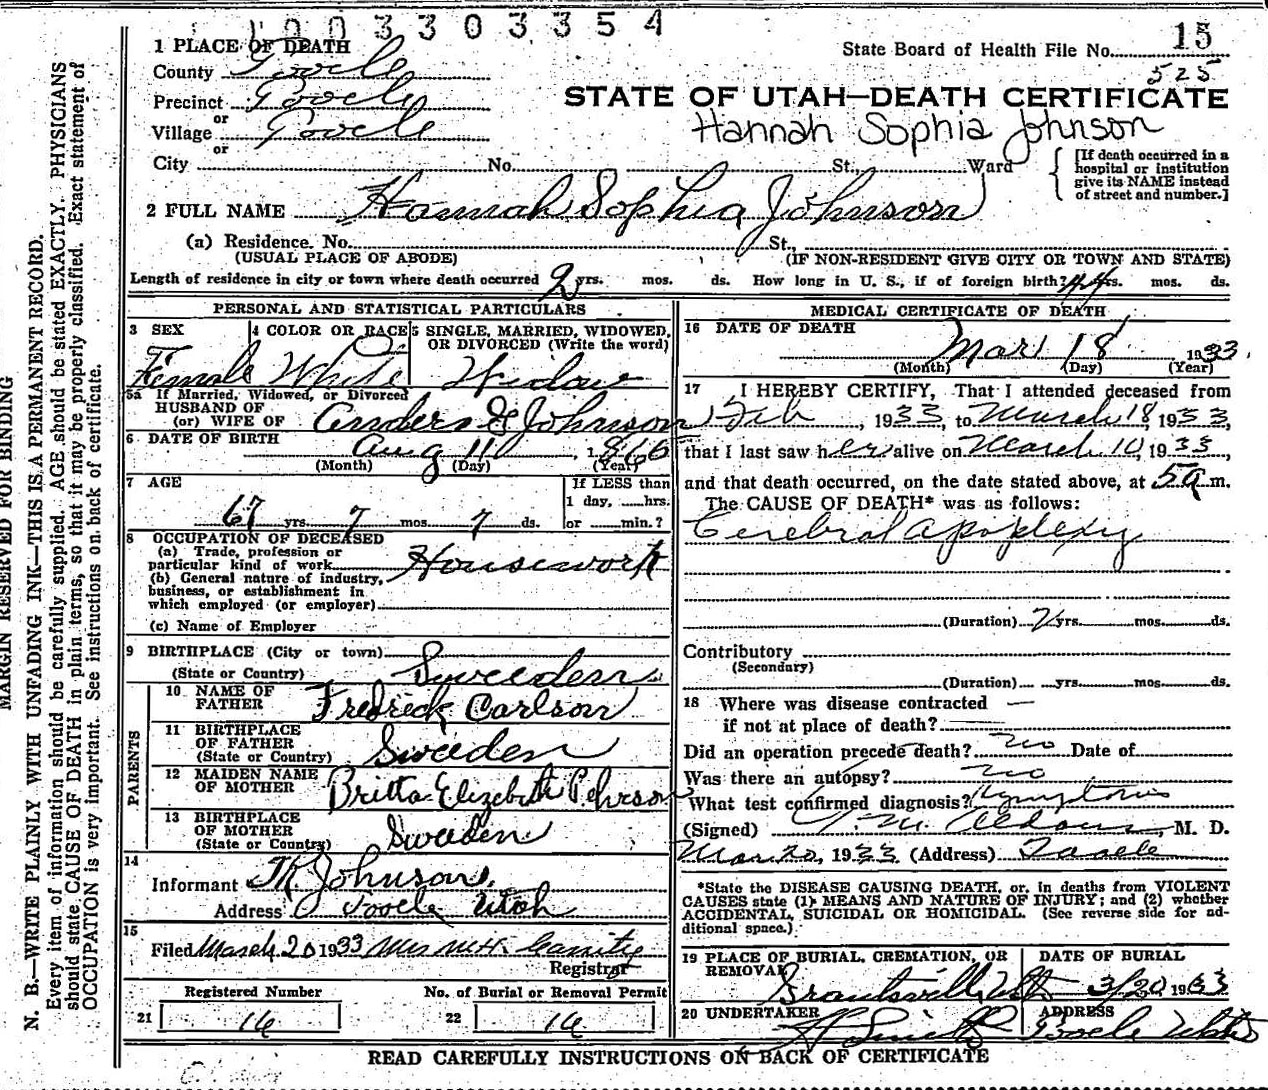 1003303354
15
State Board of Health File No.
525
STATE OF UTAH—DEATH CERTIFICATE
Hannah Sophia Johnson
1 PLACE OF DEATH
County Tooele
Precinct Tooele
or
Village Tooele
or
City No. St., Ward
[If death occurred in a
hospital or institution
give its NAME instead
of street and number.]
2 FULL NAME Hannah Sophia Johnson
(a) Residence. No. St.,
(USUAL PLACE OF ABODE) (IF NON-RESIDENT GIVE CITY OR TOWN AND STATE)
Length of residence in city or town where death occurred 2 yrs. mos. ds. How long in U. S., if of foreign birth? 44 yrs. mos. ds.
PERSONAL AND STATISTICAL PARTICULARS
3 SEX 4 COLOR OR RACE 5 SINGLE, MARRIED, WIDOWED,
OR DIVORCED (Write the word)
Female White Widow
5a If Married, Widowed, or Divorced
HUSBAND OF
(or) WIFE OF Anders G Johnson
6 DATE OF BIRTH Aug 11, 1866
(Month) (Day) (Year)
7 AGE If LESS than
1 day, hrs.
67 yrs. 7 mos. 7 ds. or min.?
8 OCCUPATION OF DECEASED
(a) Trade, profession or
particular kind of work Housework
(b) General nature of industry,
business, or establishment in
which employed (or employer)
(c) Name of Employer
9 BIRTHPLACE (City or town)
(State or Country) Sweeden
PARENTS
10 NAME OF
FATHER Fredrick Carlson
11 BIRTHPLACE
OF FATHER
(State or Country) Sweden
12 MAIDEN NAME
OF MOTHER Britta Elizebeth Pehrson
13 BIRTHPLACE
OF MOTHER
(State or Country) Sweden
14
Informant Johnson
Address Tooele Utah
15
Filed March 20 1933 Mrs M H
Registrar
Registered Number No. of Burial or Removal Permit
21 16 22 16
MEDICAL CERTIFICATE OF DEATH
16 DATE OF DEATH
Mar 18 1933.
(Month) (Day) (Year)
17 I HEREBY CERTIFY, That I attended deceased from
Feb, 1933, to March 18, 1933,
that I last saw her alive on March 10, 1933,
and that death occurred, on the date stated above, at 5a m.
The CAUSE OF DEATH* was as follows:
Cerebral apoplexy
(Duration) 2 yrs. mos. ds.
Contributory
(Secondary)
(Duration) yrs. mos. ds.
18 Where was disease contracted —
if not at place of death?
Did an operation precede death? no Date of
Was there an autopsy? no
What test confirmed diagnosis? Symptoms
(Signed) , M. D.
Mar 20, 1933 (Address) Tooele
*State the DISEASE CAUSING DEATH, or, in deaths from VIOLENT
CAUSES state (1) MEANS AND NATURE OF INJURY; and (2) whether
ACCIDENTAL, SUICIDAL OR HOMICIDAL. (See reverse side for ad-
ditional space.)
19 PLACE OF BURIAL, CREMATION, OR
REMOVAL
DATE OF BURIAL
Grantsville, Ut 3/20, 1933
20 UNDERTAKER ADDRESS
Tooele Utah
READ CAREFULLY INSTRUCTIONS ON BACK OF CERTIFICATE
MARGIN RESERVED FOR BINDING
N. B.—WRITE PLAINLY WITH UNFADING INK—THIS IS A PERMANENT RECORD.
Every item of information should be carefully supplied. AGE should be stated EXACTLY. PHYSICIANS
should state CAUSE OF DEATH in plain terms, so that it may be properly classified. Exact statement of
OCCUPATION is very important. See instructions on back of certificate.